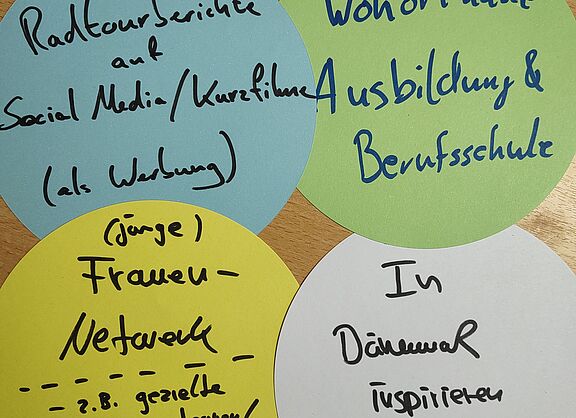 Radtourberichte
auf
Social Media/Kurzfilme
(als Werbung)
Wohortnahe
Ausbildung &
Berufsschule
(junge)
Frauen-
Netzwerk
- z.B. gezielte
In
Dänemark
inspirieren